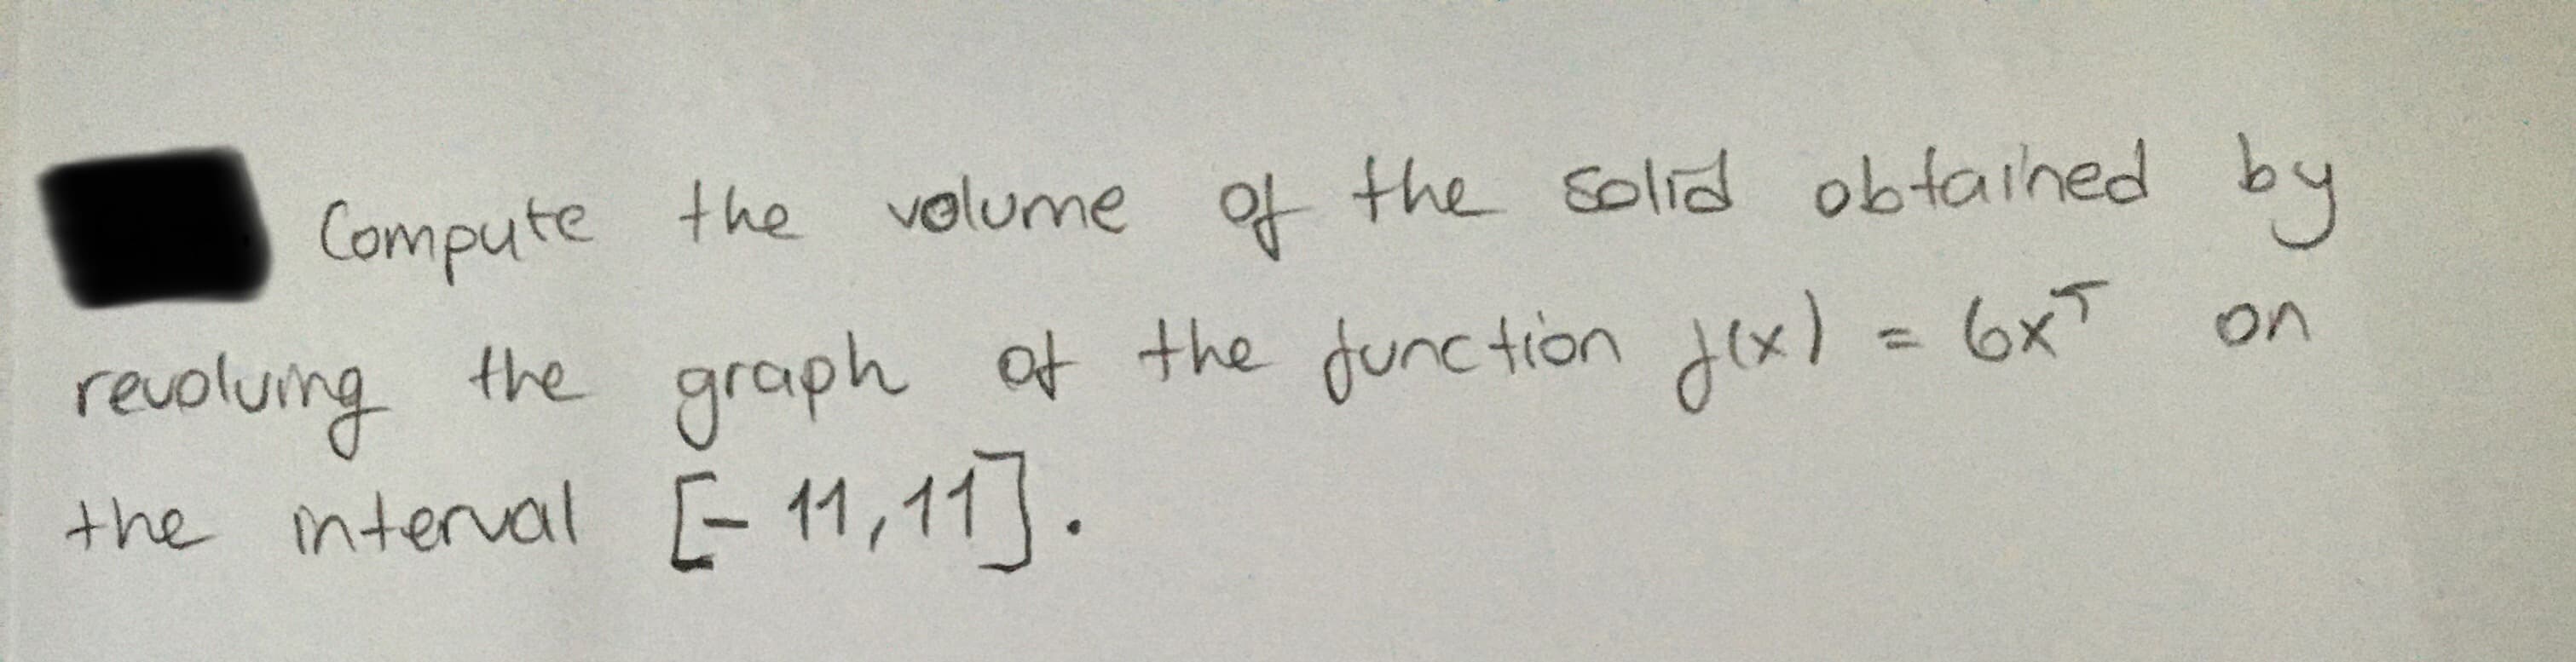 Compute the volume of the solid obtained by
revolving the graph of the function f(x) = 6x⁵ on
the interval [- 11, 11].